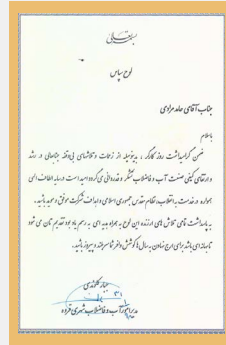 بسمه تعالی
لوح سپاس
جناب آقای حامد مرادی
با سلام
ضمن گرامیداشت روز کارگر ، بدینوسیله از زحمات و تلاشهای بی وقفه جنابعالی در رشد
و ارتقای کیفی صنعت آب و فاضلاب تشکر و قدردانی می گردد امید است در سایه الطاف الهی
همواره در خدمت به انقلاب، نظام مقدس جمهوری اسلامی و اهداف شرکت موفق و مؤید باشید.
به پاسداشت تمامی تلاش های ارزنده این لوح به همراه هدیه ای به رسم یادبود تقدیم تان می شود
باشید.
مدیر امور آب و فاضلاب شهری قروه